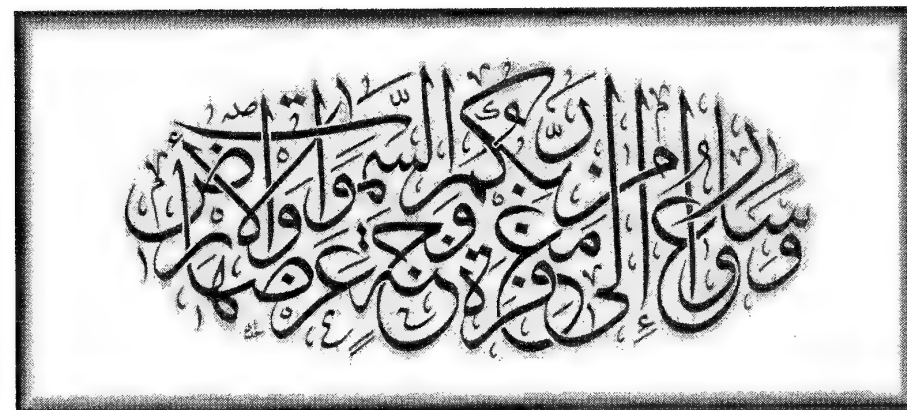 وَسَارِعُوا إِلَىٰ مَغْفِرَةٍ مِنْ رَبِّكُمْ وَجَنَّةٍ عَرْضُهَا السَّمَوَاتُ وَالْأَرْضُ